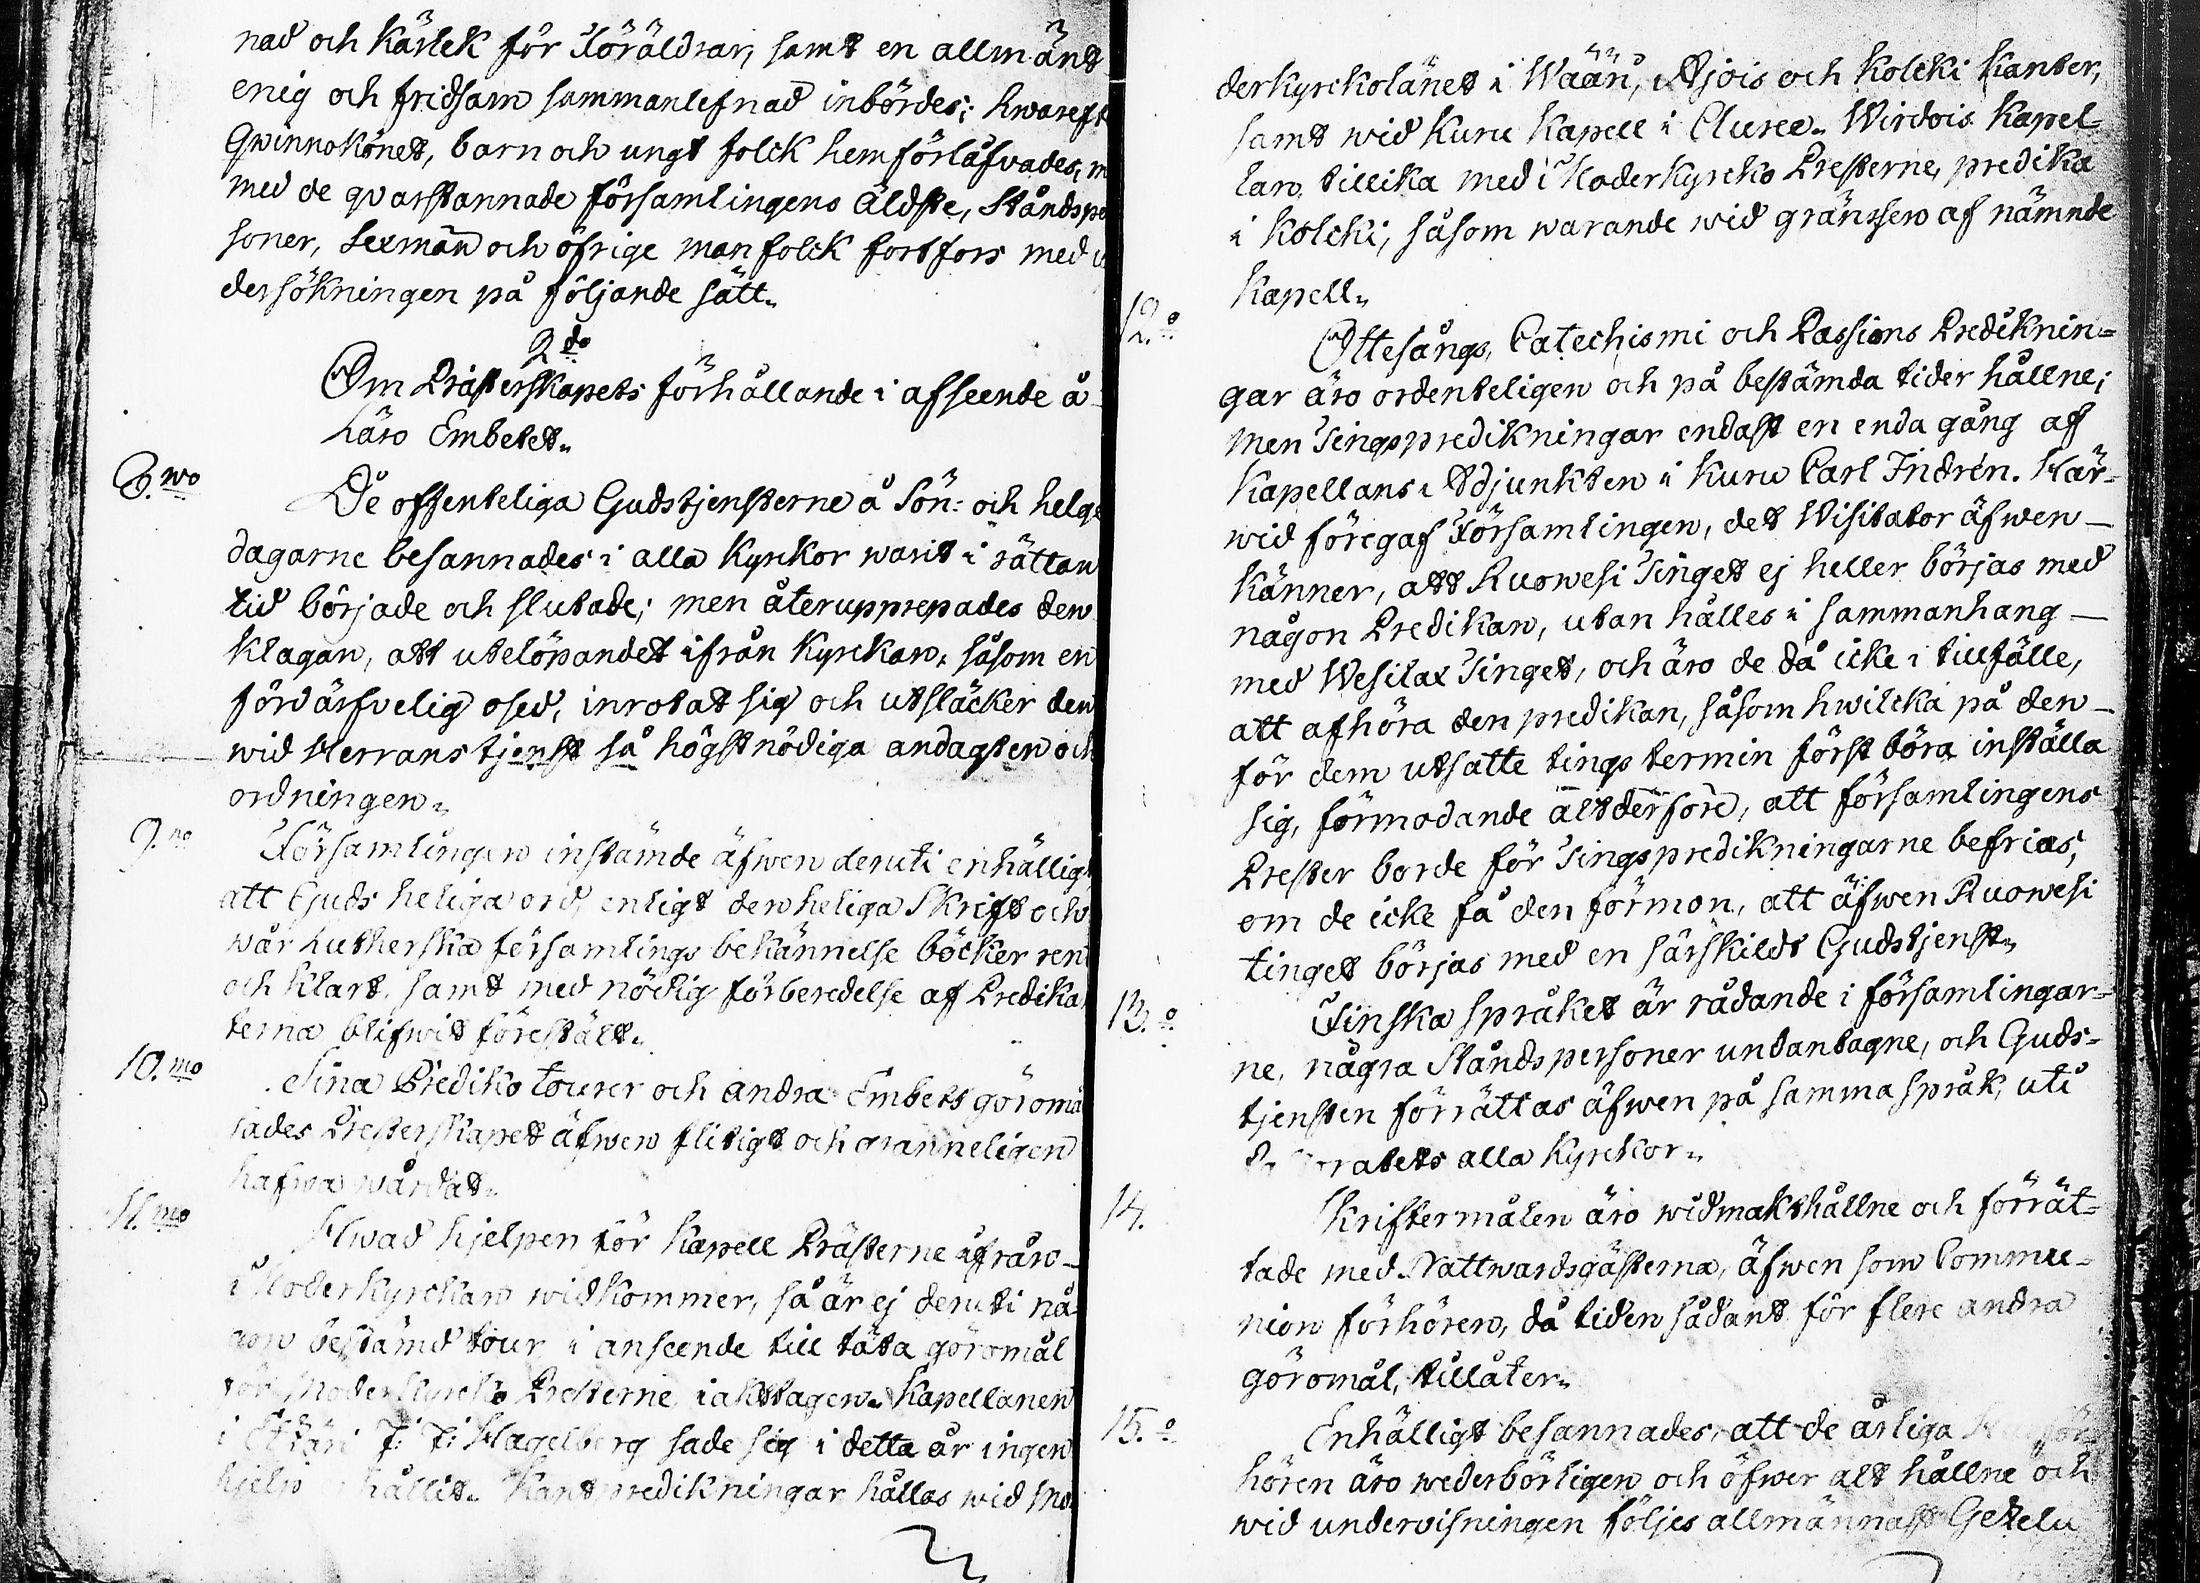 nad och Kärlek för Föräldrar, samt en allmänt
enig och fridsam sammanlefnad inbördes; hwareft
Qwinnokönet, barn och ungt folck hemförläfvades, m
med de qvarstannade församlingens Äldste, Ståndspe
soner, Sexmän och öfrige manfolck fortfors med u
dersökningen på följande sätt.
2do
Om Prästerskapets förhållande i afseende å
Läro Embetet.
8.vo
De offenteliga Gudstjensterne å Sön- och helge
dagarne besannades i alla Kyrkor warit i rättan
tid började och slutade; men återupprepades den
Klagan, att utelöpandet ifrån Kyrckan, såsom en
fördärfvelig osed, inrotat sig och utsläcker den
wid Herrans tjenst så högstnödiga andagten och
ordningen.
9.no
Församlingen instämde äfwen deruti enhälligt
att Guds heliga ord, enligt den heliga Skrift och
wår Lutherska församlings bekännelse böcker rent
och Klart, samt med nödig förberedelse af Predikan
terna blifwit förestält.
10.mo
Sina Prediko tourer och andra Embets göromå
sades Presterskapet äfwen flitigt och granneligen
hafwa wårdat.
11.mo
Hwad hjelpen för Kapell Prästerne ifrån
Moderkyrckan widkommer, så är ej deruti nå-
gon bestämd tour i anseende till täta göromål
för Moderkyrcko Presterne iakttagen. Kapellanen
i Etsäri F: F: Hagelberg sade sig i detta år ingen
hjelp hållit. Kantpredikningar hållas wid Mo-
derkyrckolänet i Wään, Ajois och Kolcki Kanter,
samt wid Kuru Kapell i Auree. Wirdois Kapel-
lan, tillika med Moderkyrcko Presterne, predika
i Kolcki, såsom warande wid gränssen af nämnde
Kapell.
12.o
Ottesångs, Catechismi och Passions Prediknin-
gar äro ordenteligen och på bestämda tider hållne;
men Tingspredikningar endast en enda gång af
Kapellans Adjunkten i Kuru Carl Indrén. Här-
wid föregaf Församlingen, det Wisitator äfwen
Känner, att Ruowesi Tinget ej heller börjas med
någon Predikan, utan hålles i sammanhang
med Wesilax Tinget, och äro de då icke i tillfälle,
att afhöra den predikan, såsom hwilcka på den
för dem utsatte tings termin först böra inställa
sig, förmodande altderföre, att församlingens
Prester borde för Tingspredikningarne befrias,
om de icke få den förmon, att äfwen Ruowesi
tinget börjas med en särskildt Gudstjenst.
13.o
Finska språket är rådande i församlingar-
ne, några Ståndspersoner undantagne, och Guds-
tjensten förrättas äfwen på samma språk, uti
alla Kyrckor.
14.
Skriftermålen äro widmakthållne och förrät-
tade med Nattwardsgästerna, äfwen som Commu-
nion förhören, då tiden sådant för flere andra
göromål, tillåter.
15.o
Enhälligt besannades, att de årliga
hören äro wederbörligen och öfwer alt hållne och
wid underwisningen följes allmännast Gezelii